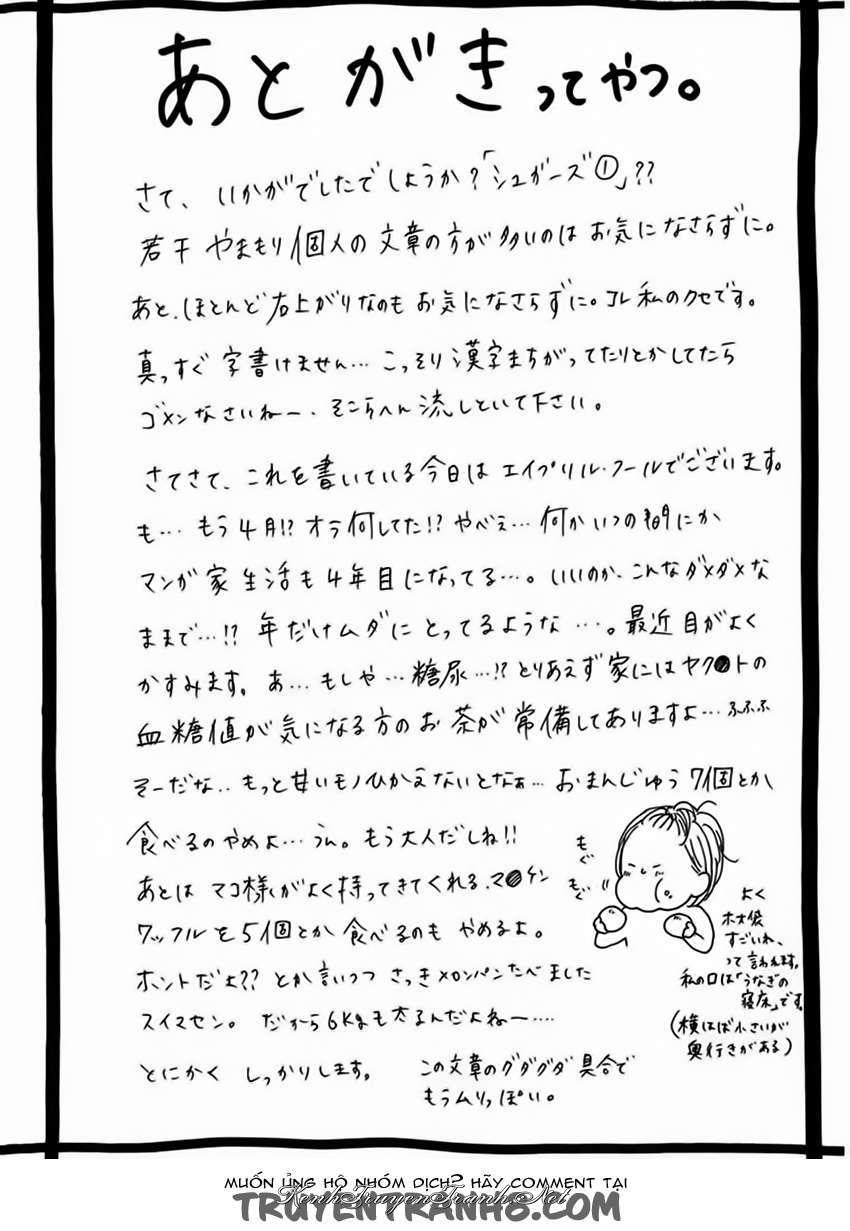 あとがきってやつ。
さて、いかがでしたでしょうか?「シュガーズ①」??
若干やまもり個人の文章の方が多いのはお気になさらずに。
あと、ほとんど右上がりなのもお気になさらずに。コレ私のクセです。
真っすぐ字書けません…こっそり漢字まちがってたりとかしてたら
ゴメンなさいねー、そこらへん流しといて下さい。
さてさて、これを書いている今日はエイプリル・フールでございます。
も…もう4月!?オラ何してた!?やべぇ…何かいつの間にか
マンガ家生活も4年目になってる…。いいのか、こんなダメダメな
ままで…!?年だけムダにとってるような…。最近目がよく
かすみます。あ…もしや…糖尿…!?とりあえず家にはヤク●トの
血糖値が気になる方のお茶が常備してありますよ…ふふふ
そーだな..もっと甘いモノひかえないとなぁ…おまんじゅう7個とか
食べるのやめよ…うん。もう大人だしね!!
あとはマコ様がよく持ってきてくれる、マ●ケン
ワッフルを5個とか食べるのもやめるよ。
ホントだよ??とか言いつつさっきメロンパンたべました
スイマセン。だから6kgも太るんだよねー….
とにかくしっかりします。
この文章のグダグダ具合で
もうムリっぽい。
もぐ
もぐ
よく
ホオ袋
すごいね、
って言われます。
私の口は「うなぎの
寝床」です。
(横はば小さいが
奥行きがある)
MUỐN ỦNG HỘ NHÓM DỊCH? HÃY COMMENT TẠI
KenhTruyenTranh.Net
TRUYENTRANH8.COM